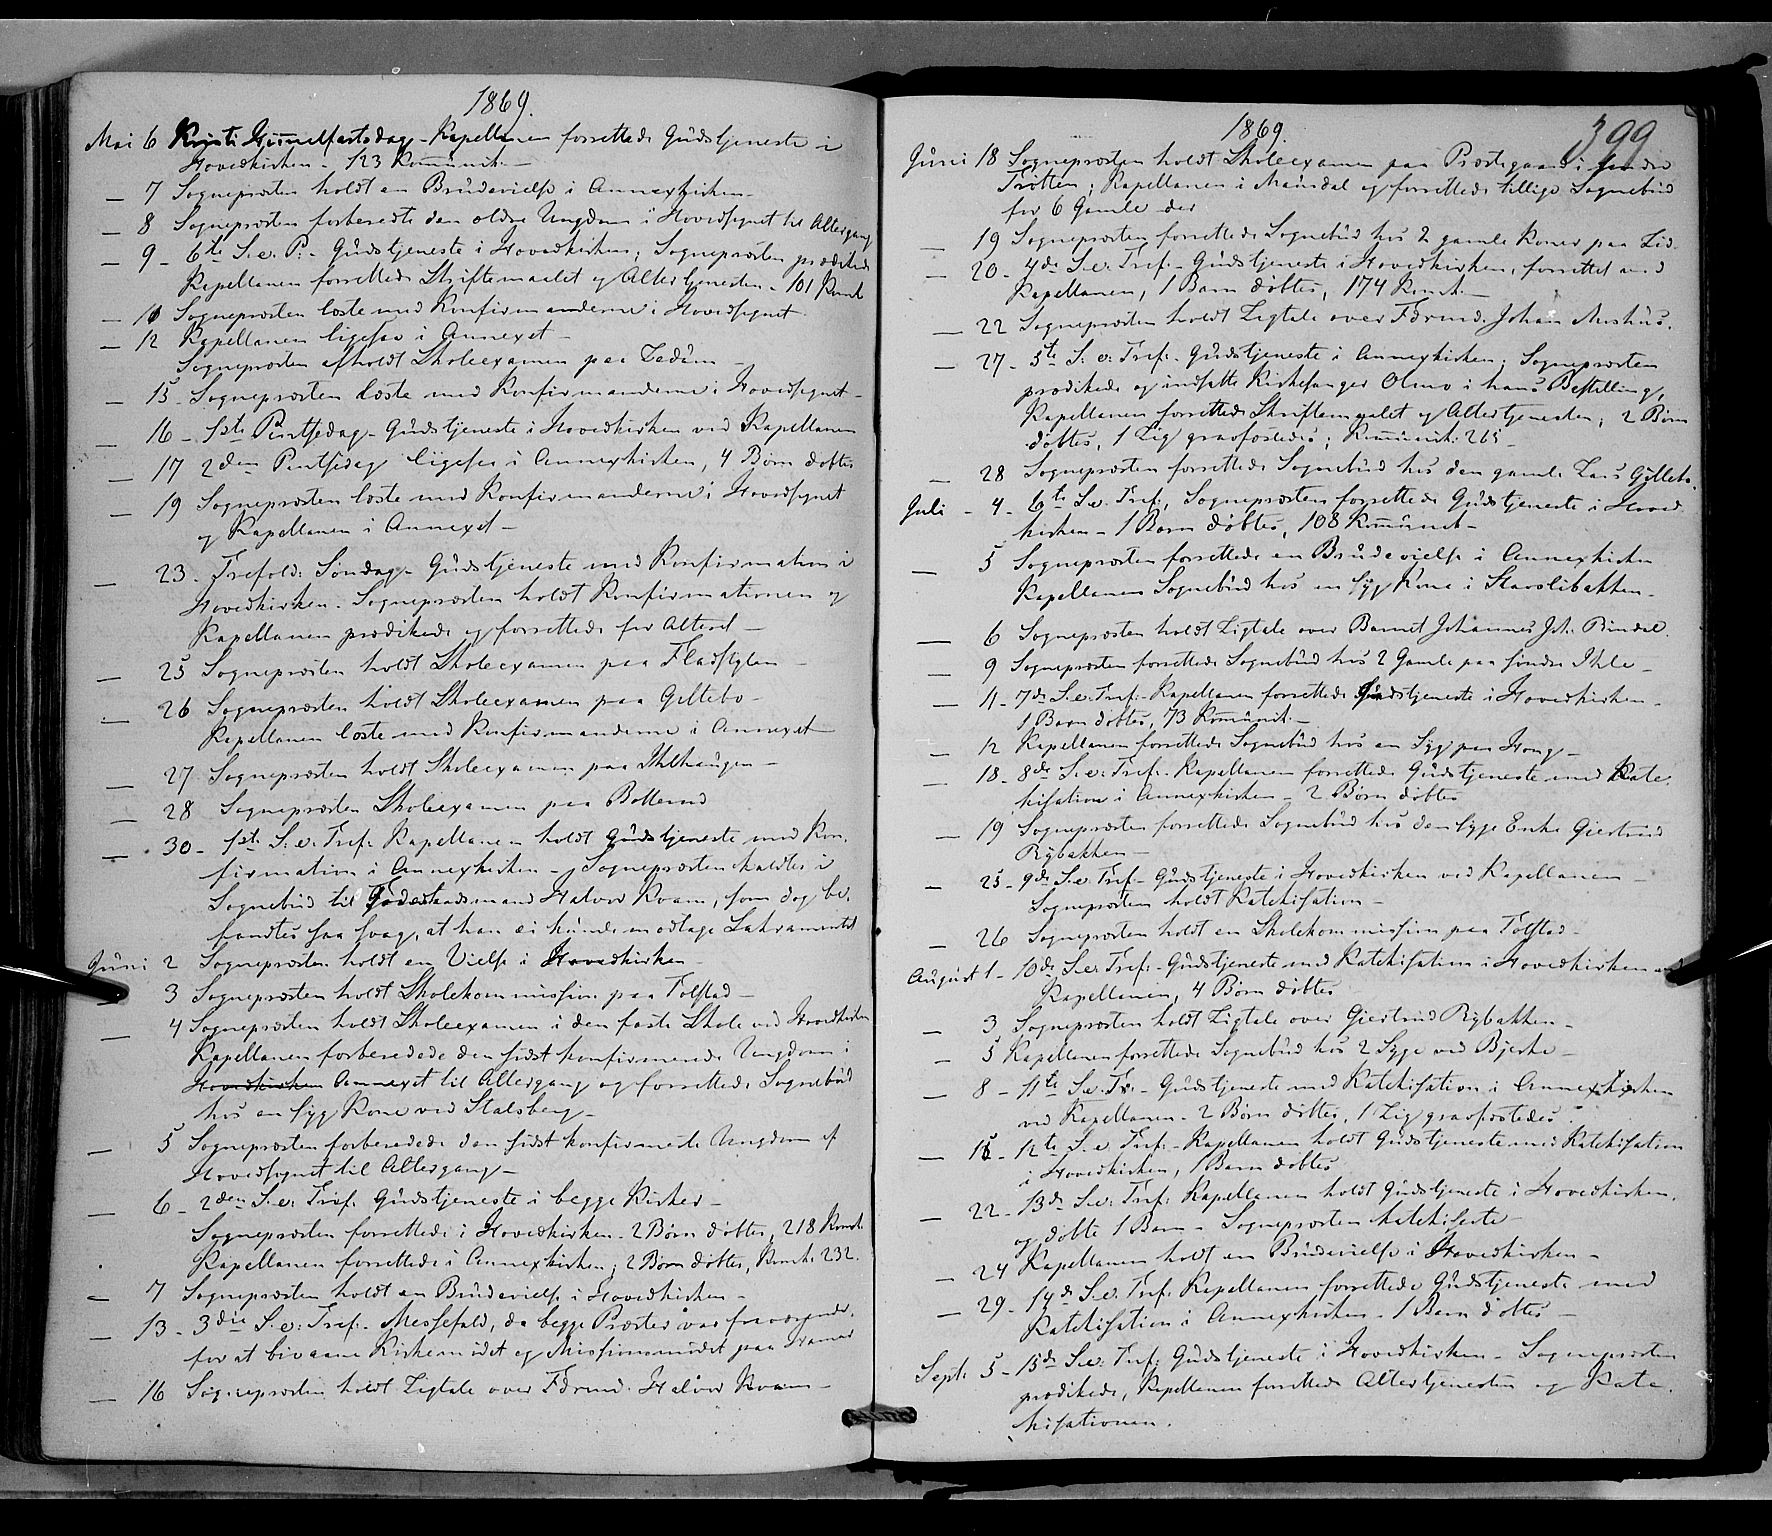 1869.
Mai 6 Kristi Himmelfartsdag - Kapellanen forrettede Gudstjeneste i
Hovedkirken - 123 Kommunik.
— 7 Sognepræsten holdt en Brudevielse i Annexkirken -
— 8 Sognepræsten forberedte den ældre Ungdom i Hovedsognet til Altergang
— 9 - 6te S. e. P. - Gudstjeneste i Hovedkirken; Sognepræsten prædikede
Kapellanen forrettede Skriftemaalet og Altertjenesten - 101 Komk
— 10 Sognepræsten læste med Konfirmanderne i Hovedsognet
— 12 Kapellanen ligesaa i Annexet -
Sognepræsten afholdt Skoleexamen paa
— 15 Sognepræsten læste med Konfirmanderne i Hovedsognet -
— 16 - 1ste Pintsedag - Gudstjeneste i Hovedkirken ved Kapellanen
— 17 2den Pintsedag ligesaa i Annexkirken, 4 Børn døbtes
— 19 Sognepræsten læste med Konfirmanderne i Hovedsognet
og Kapellanen i Annexet -
— 23 - Trefold: Søndag - Gudstjeneste med Konfirmation i
Hovedkirken - Sognepræsten holdt Konfirmationen og
Kapellanen prædikede og forrettede for Alteret -
— 25 Sognepræsten holdt Skoleexamen paa Fladstylen -
— 26 Sognepræsten holdt Skoleexamen paa Gillebo -
Kapellanen læste med Konfirmanderne i Annexet
— 27 Sognepræsten holdt Skoleexamen paa Ihlehaugen -
— 28 Sognepræsten Skoleexamen paa Botterud
— 30 - 1ste S. e. Tref. Kapellanen holdt Gudstjeneste med Kon-
firmation i Annexkirken - Sognepræsten kaldtes i
Sognebud til Godestadsmand Halvor Kvam, som dog be-
fandtes saa svag, at han ei kunde modtage Sakramentet
Juni 2 Sognepræsten holdt en Vielse i Hovedkirken -
3 Sognepræsten holdt Skolekommission paa Tolstad -
— 4 Sognepræsten holdt Skoleexamen i den faste Skole ved Hovedkirken
Kapellanen forberedede den sidst konfirmerede Ungdom i
Hovedkirken Annexet til Altergang og forrettede Sognebud
hos en syg Kone ved Stalsberg -
— 5 Sognepræsten forberedede den sidst konfirmerte Ungdom af
Hovedsognet til Altergang -
— 6 - 2den S. e. Tref. Gudstjeneste i begge Kirker -
Sognepræsten forrettede i Hovedkirken - 2 Børn døbtes, 218 Komk.
Kapellanen forrettede i Annexkirken; 2 Børn døbtes, Komk. 232.
— 7 Sognepræsten holdt en Brudevielse i Hovedkirken -
— 13 - 3die S. e. Tref. - Messefald, da begge Præster var fraværende
for at bivaane Kirkemødet og Missionsmødet paa Hamar
— 16 Sognepræsten holdt Ligtale over Fdrmd. Halvor Kvam -
399
1869.
Juni 18 Sognepræsten holdt Skoleexamen paa Præstegaard i søndre
Trøtten; Kapellanen i Maurdal og forrettede tillige Sognebud
for 6 Gamle der
— 19 Sognepræsten forrettede Sognebud hos 2 gamle Koner paa Lid.
— 20 - 4de S. e. Tref. - Gudstjeneste i Hovedkirken, forrettet ved
Kapellanen, 1 Barn døbtes, 174 Komk. -
— 22 Sognepræsten holdt Ligtale over Fdrmd. Johan
— 27 - 5te S. e. Tref. - Gudstjeneste i Annexkirken; Sognepræsten
prædikede og indsatte Kirkesanger Olmo i hans Bestilling,
Kapellanen forrettede Skriftemaalet og Altertjenesten; 2 Børn
døbtes, 1 Lig gravfæstedes; Kommunik. 265 -
— 28 Sognepræsten forrettede Sognebud hos den gamle Lars Gillebo.
Juli - 4 - 6te S. e. Tref., Sognepræsten forrettede Gudstjeneste i Hoved-
kirken - 1 Barn døbtes, 108 Kommunik -
— 5 Sognepræsten forrettede en Brudevielse i Annexkirken
Kapellanen Sognebud hos en syg Kone i Stavslibakken -
— 6 Sognepræsten holdt Ligtale over Barnet Johannes Joh. Rindal.
— 9 Sognepræsten forrettede Sognebud hos 2 Gamle paa søndre Ihle -
— 11 - 7de S. e. Tref. - Kapellanen forrettede Gudstjeneste i Hovedkirken -
1 Barn døbtes, 73 Kommunik. -
— 12 Kapellanen forrettede Sognebud hos en Syg paa Hong -
— 18 - 8de S. e. Tref. Kapellanen forrettede Gudstjeneste med Kate-
kisation i Annexkirken - 2 Børn døbtes
— 19 Sognepræsten forrettede Sognebud hos den syge Enke Giertrud
Rybakken -
— 25 - 9de S. e. Tref - Gudstjeneste i Hovedkirken ved Kapellanen -
Sognepræsten holdt Katekisation -
— 26 Sognepræsten holdt en Skolekommission paa Tolstad -
August 1 - 10de S. e. Tref. - Gudstjeneste med Katekisation i Hovedkirken ved
Kapellanen, 4 Børn døbtes
— 3 Sognepræsten holdt Ligtale over Giertrud Rybakken -
— 5 Kapellanen forrettede Sognebud hos 2 Syge ved Bjerke -
— 8 - 11te S. e. Tr. - Gudstjeneste med Katekisation i Annexkirken
ved Kapellanen - 2 Børn døbtes, 1 Lig gravfæstedes
— 15 - 12te S. e. Tref. - Kapellanen holdt Gudstjeneste med Katekisation
i Hovedkirken, 1 Barn døbtes
— 22 - 13de S. e. Tref. Kapellanen holdt Gudstjeneste i Hovedkirken,
og døbte 1 Barn - Sognepræsten katekiserte -
— 24 Kapellanen holdt en Brudevielse i Hovedkirken -
— 29 - 14de S. e. Tref. Kapellanen forrettede Gudstjeneste med
Katekisation i Annexkirken - 1 Barn døbtes -
Sept: 5 - 15de S. e. Tref. Gudstjeneste i Hovedkirken - Sognepræsten
prædikede, Kapellanen forrettede Altertjenesten og Kate-
kisationen.